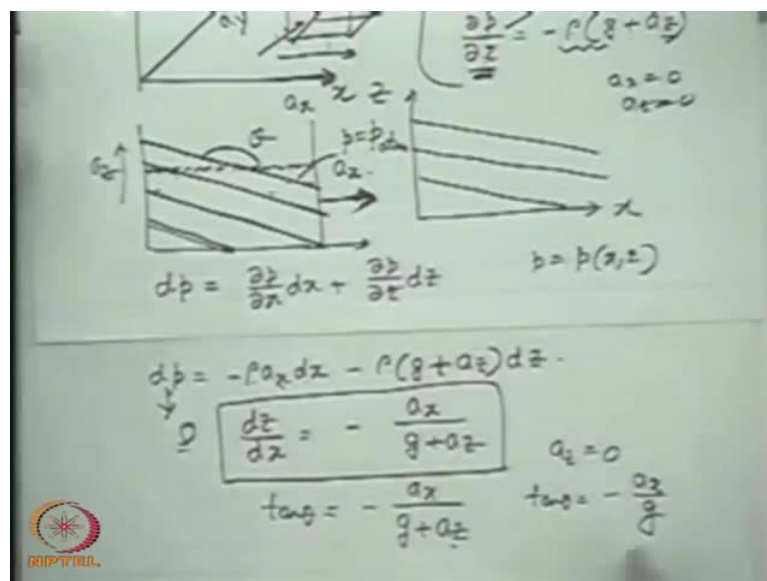 ay
∂p/∂z = -ρ(g + az)
ax = 0
az = 0
x
ax
z
az
θ
p = patm
ax
x
dp = ∂p/∂x dx + ∂p/∂z dz
p = p(x,z)
dp = -ρax dx - ρ(g + az) dz.
0
dz/dx = - ax/(g + az)
az = 0
tanθ = - ax/(g + az)
tanθ = - ax/g
NPTEL